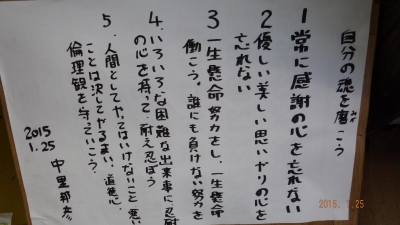 自分の魂を磨こう
1 常に感謝の心を忘れない
2 優しい美しい思いヤリの心を
忘れない
3 一生懸命努力をし、一生懸命
働こう。誰にも負けない努力を
4. いろいろな困難な出来事に忍耐
の心を持って耐え忍ぼう
5. 人間としてやってはいけないこと 悪い
ことは決してやるまい、道徳心、
倫理観を守っていこう。
2015
1.25
中里
2015. 1.25